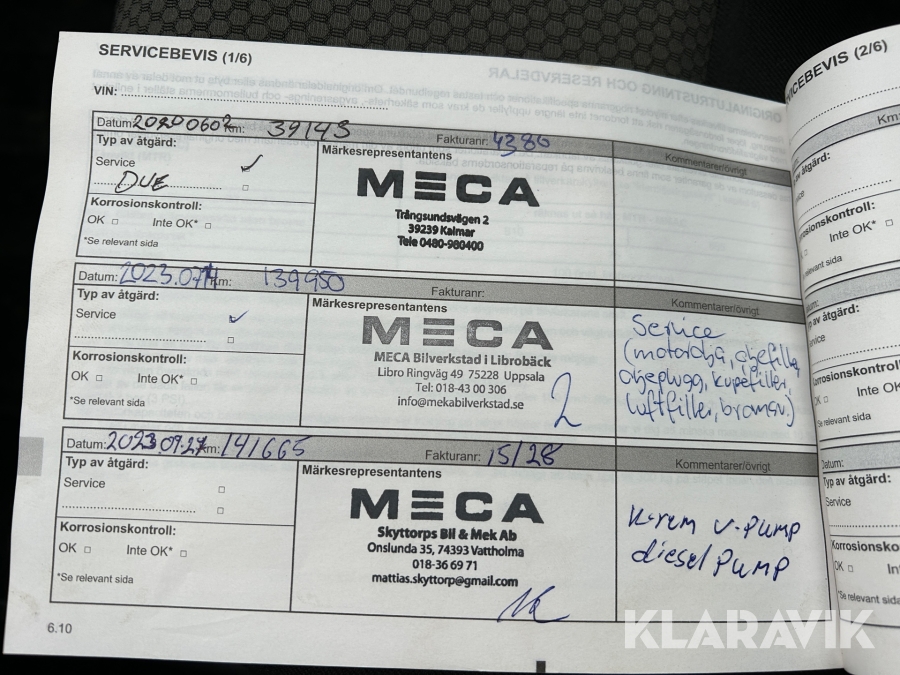 SERVICEBEVIS (1/6)
VIN:
Datum: 20200602 Km: 39143 Fakturanr: 4380
Typ av åtgärd:
Service ✓
DUE
Korrosionskontroll:
OK □ Inte OK* □
*Se relevant sida
Märkesrepresentantens
MECA
Trångsundsvägen 2
39239 Kalmar
Tele 0480-980400
Kommentarer/övrigt
Datum: 2023.07 Km: 139950 Fakturanr:
Typ av åtgärd:
Service ✓
Korrosionskontroll:
OK □ Inte OK* □
*Se relevant sida
Märkesrepresentantens
MECA
MECA Bilverkstad i Librobäck
Libro Ringväg 49 75228 Uppsala
Tel: 018-43 00 306
info@mekabilverkstad.se
2
Kommentarer/övrigt
Service
(motorolja, oljefilter,
oljeplugg, kupefilter,
luftfilter, bromsv.)
Datum: 2023.09.27 Km: 141665 Fakturanr: 15128
Typ av åtgärd:
Service □
Korrosionskontroll:
OK □ Inte OK* □
*Se relevant sida
Märkesrepresentantens
MECA
Skyttorps Bil & Mek Ab
Onslunda 35, 74393 Vattholma
018-36 69 71
mattias.skyttorp@gmail.com
Kommentarer/övrigt
K-rem V-Pump
diesel Pump
6.10
KLARAVIK
ORIGINALUTRUSTNING OCH RESERVDELAR
VICEBEVIS (2/6)
Km:
av åtgärd:
Inte OK* □
relevant sida
av åtgärd:
ervice
Inte OK
Se relevant sida
Datum:
Typ av åtgärd:
Service
OK □
*Se relevant sida